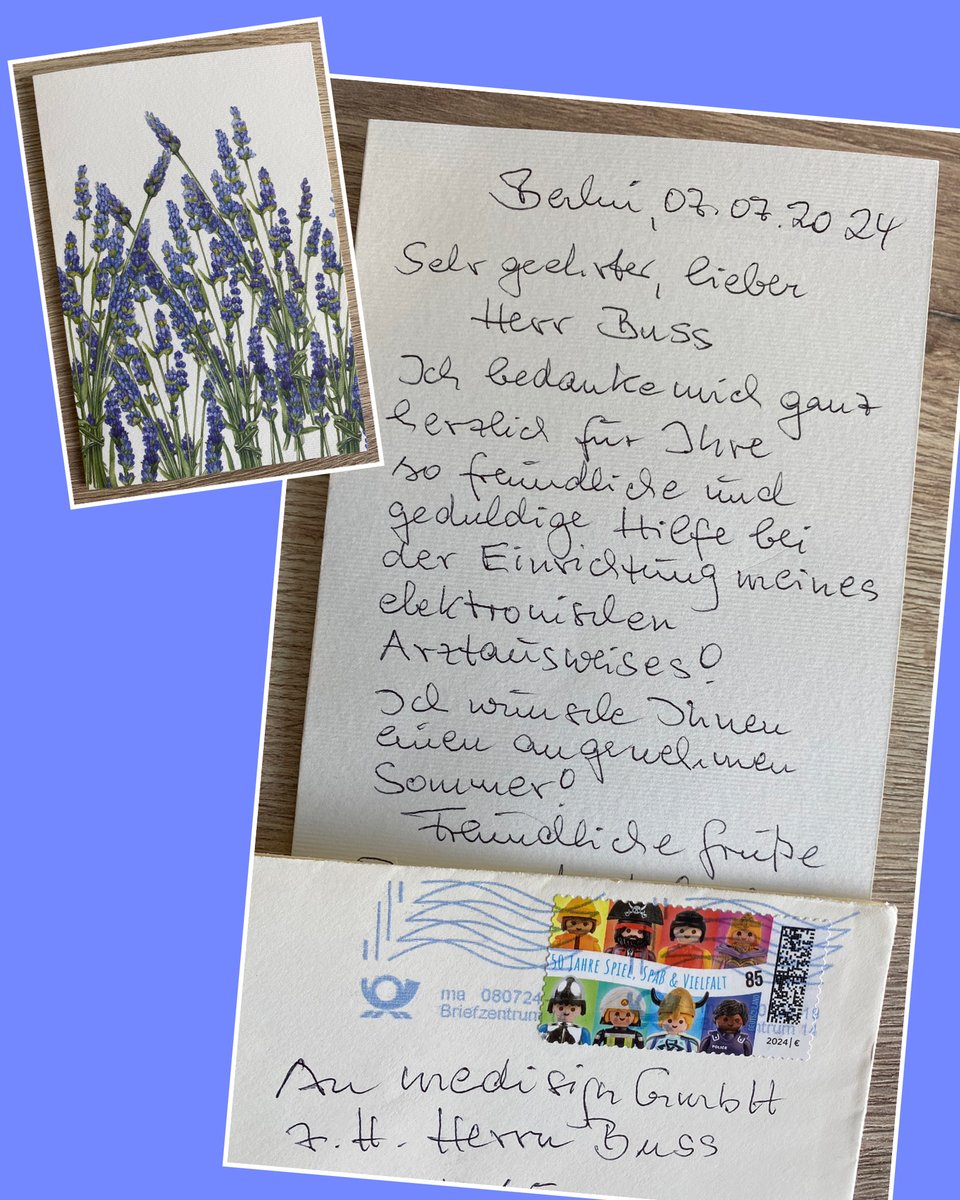 Berlin, 07.07.2024
Sehr geehrter, lieber
Herr Buss
Ich bedanke mich ganz
herzlich für Ihre
so freundliche und
geduldige Hilfe bei
der Einrichtung meines
elektronischen
Arztausweises!
Ich wünsche Ihnen
einen angenehmen
Sommer!
Freundliche Grüße
50 JAHRE SPIEL, SPAß & VIELFALT
85
POLICE
2024 | €
ma 080724
Briefzentrum
19
zentrum 14
An medisign GmbH
z. H. Herrn Buss